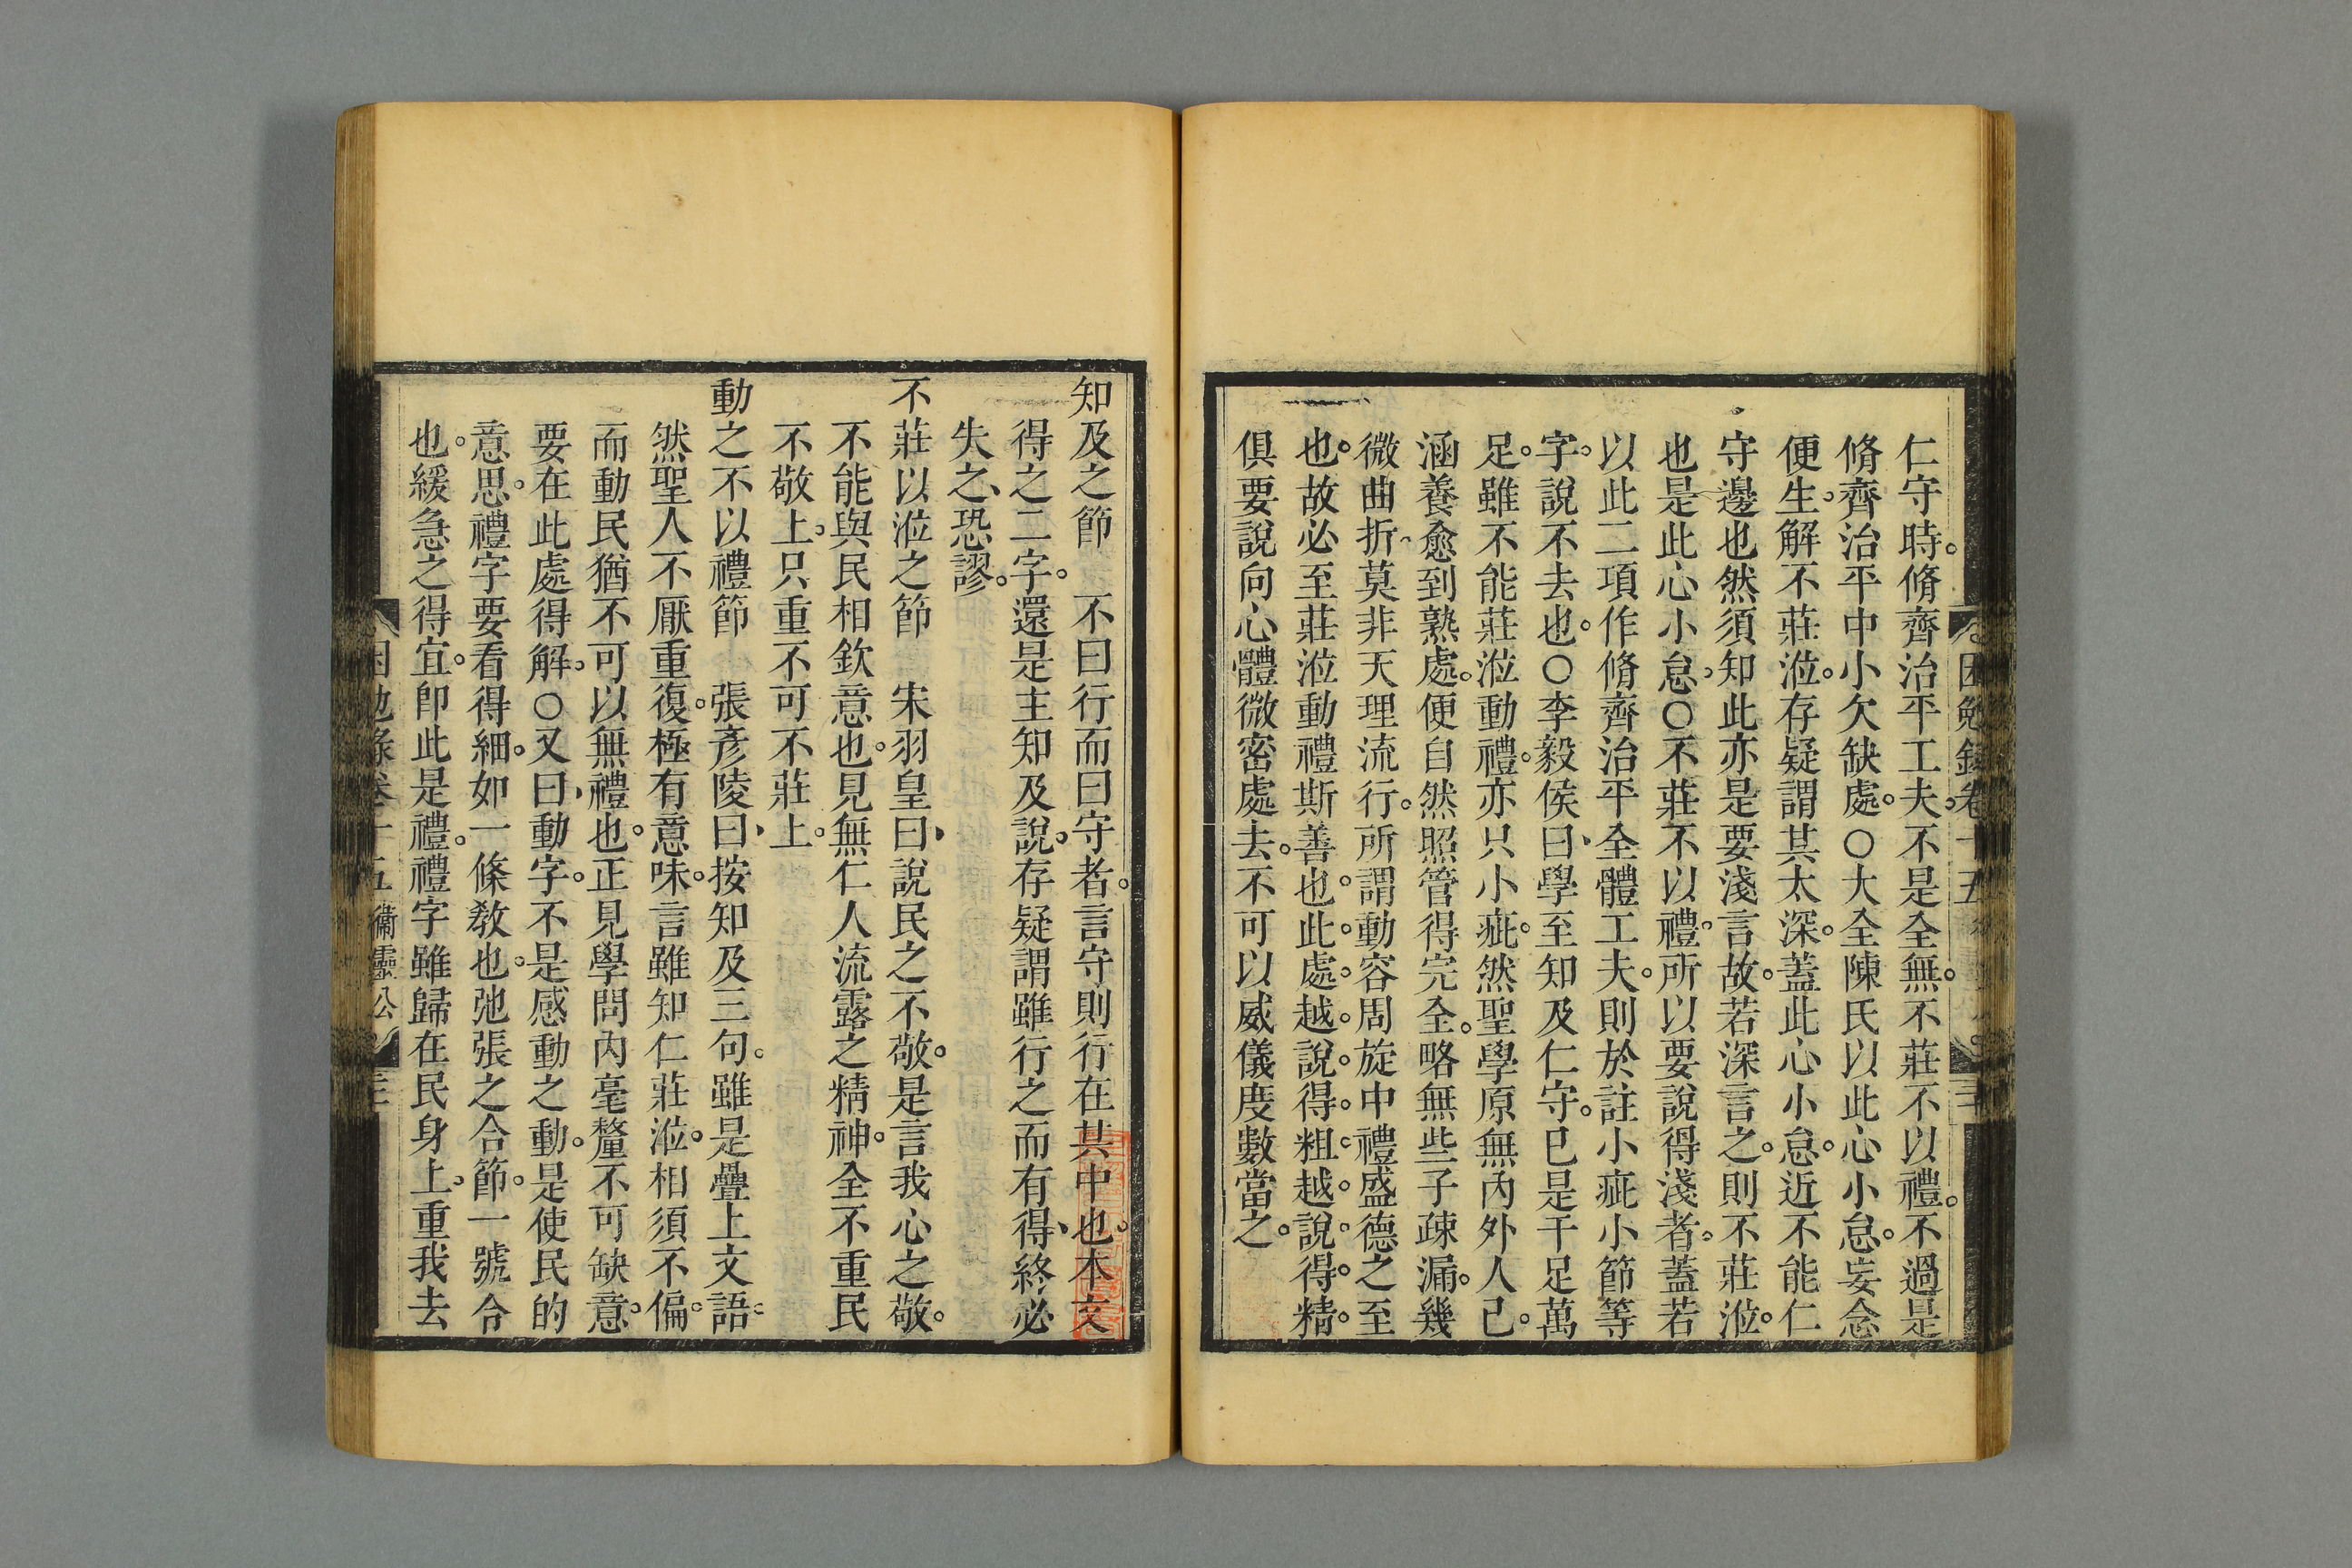 仁守時。脩齊治平工夫。不是全無。不莊不以禮。不過是
脩齊治平中小欠缺處。○大全陳氏以此心小怠。妄念
便生。解不莊涖。存疑謂其太深。蓋此心小怠。近不能仁
守邊也然須知此亦是要淺言故。若深言之。則不莊涖。
也是此心小怠。○不莊不以禮。所以要說得淺者。蓋若
以此二項作脩齊治平全體工夫。則於註小疵小節等
字。說不去也。○李毅侯曰、學至知及仁守。已是十足萬
足。雖不能莊涖動禮。亦只小疵。然聖學原無內外人己。
涵養愈到熟處。便自然照管得完全。略無些子疎漏。幾
微曲折、莫非天理流行。所謂動容周旋中禮盛德之至
也。故必至莊涖動禮斯善也。此。處。越。說。得。粗。越。說。得。精。
俱要說向心體微密處去。不可以威儀度數當之。
困勉錄卷十五
知及之節　不曰行而曰守者。言守則行在其中也。本文
得之二字。還是主知及說。存疑謂雖行之而有得、終必
失之、恐謬。
不莊以涖之節　宋羽皇曰、說民之不敬。是言我心之敬。
不能與民相欽意也。見無仁人流露之精神。全不重民
不敬上。只重不可不莊上。
動之不以禮節　張彥陵曰、按知及三句。雖是疊上文語。
然聖人不厭重復。極有意味。言雖知仁莊涖。相須不偏。
而動民猶不可以無禮也。正見學問內毫釐不可缺意。
要在此處得解。○又曰、動字。不是感動之動。是使民的
意思。禮字要看得細。如一條教也。弛張之合節。一號合
也。緩急之得宜。卽此是禮。禮字雖歸在民身上。重我去
困勉錄卷十五　衞靈公